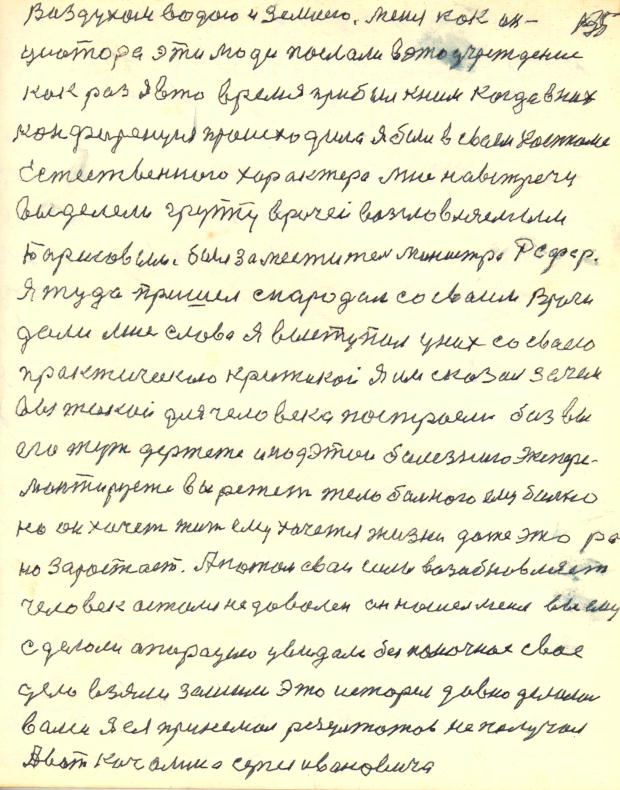 Воздухом водою и Землею. меня как ин-
циатора эти люди послали в это учреждение
как раз я в то время прибыл к ним когда в них
конференция происходила я был в своем
Естественного характера мне навстречу
выделели группу врочей возгловляемыим
Бариковым. был заместител министра Рсфср.
Я туда пришел с народом со своим Врочи
дали мне слова я выступил у них со своею
практическою критикой Я им сказал зачем
вы такой для человека построели баз вы
его тут держете и под этой болезнию Экспере-
монтируете вы режете тело болного ему болко
но он хочет жит ему хочется жизни даже это ра
но заростает. А потом свои силы возабновляет
человек остался недоволен он нашел меня вы ему
сделали апорацию увидали без комочное свое
дело взяли зашили Это история довно делолас
вами я ея принемал резултотов не получал
А вот Качалина сергея ивановича